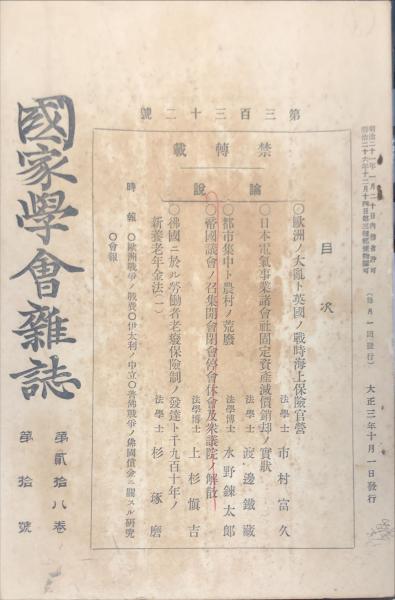 明治二十一年一月二十日內務省許可
明治二十六年十二月十四日第三種郵便物認可
(每月一囘發行)
大正三年十月一日發行
第三百三十二號
禁轉載
目次
論說
○歐洲ノ大亂ト英國ノ戰時海上保險官營
法學士 市村富久
○日本電氣事業諸會社固定資產減價銷却ノ實狀
法學士 渡邊鐵藏
○都市集中ト農村ノ荒廢
法學博士 水野鍊太郎
○帝國議會ノ召集開會閉會停會休會及衆議院ノ解散
法學博士 上杉愼吉
○佛國ニ於ル勞働者老癈保險制ノ發達ト千九百十年ノ
新養老年金法(一)
法學士 杉琢磨
時報 ○歐洲戰爭ノ戰費○伊太利ノ中立○普佛戰爭ノ佛國償金ニ關スル硏究
○會報
國家學會雜誌
第貳拾八卷
第拾號